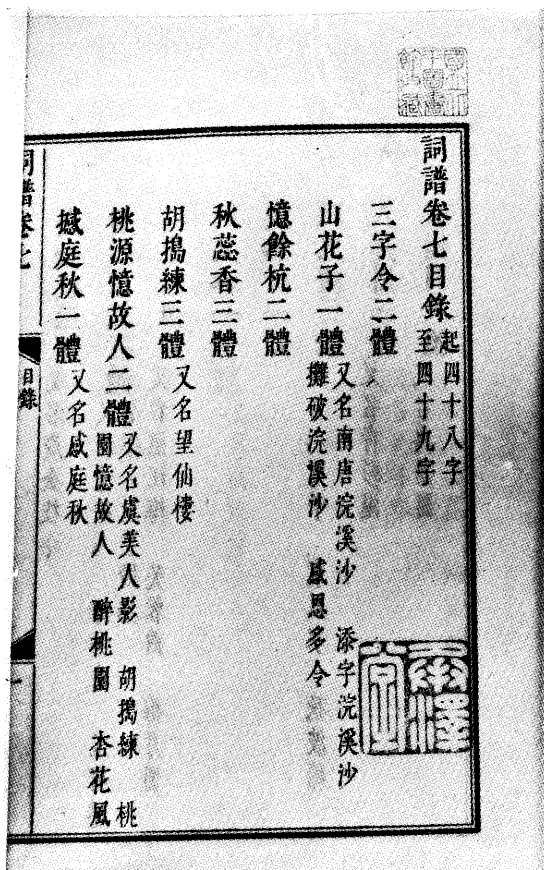 詞譜卷七目錄 起四十八字
至四十九字
三字令二體
山花子一體 又名南唐浣溪沙 添字浣溪沙
攤破浣溪沙 感恩多令
憶餘杭二體
秋蕊香三體
胡搗練三體 又名望仙樓
桃源憶故人二體 又名虞美人影 胡搗練 桃
園憶故人 醉桃園 杏花風
撼庭秋一體 又名感庭秋
詞譜卷七
目錄